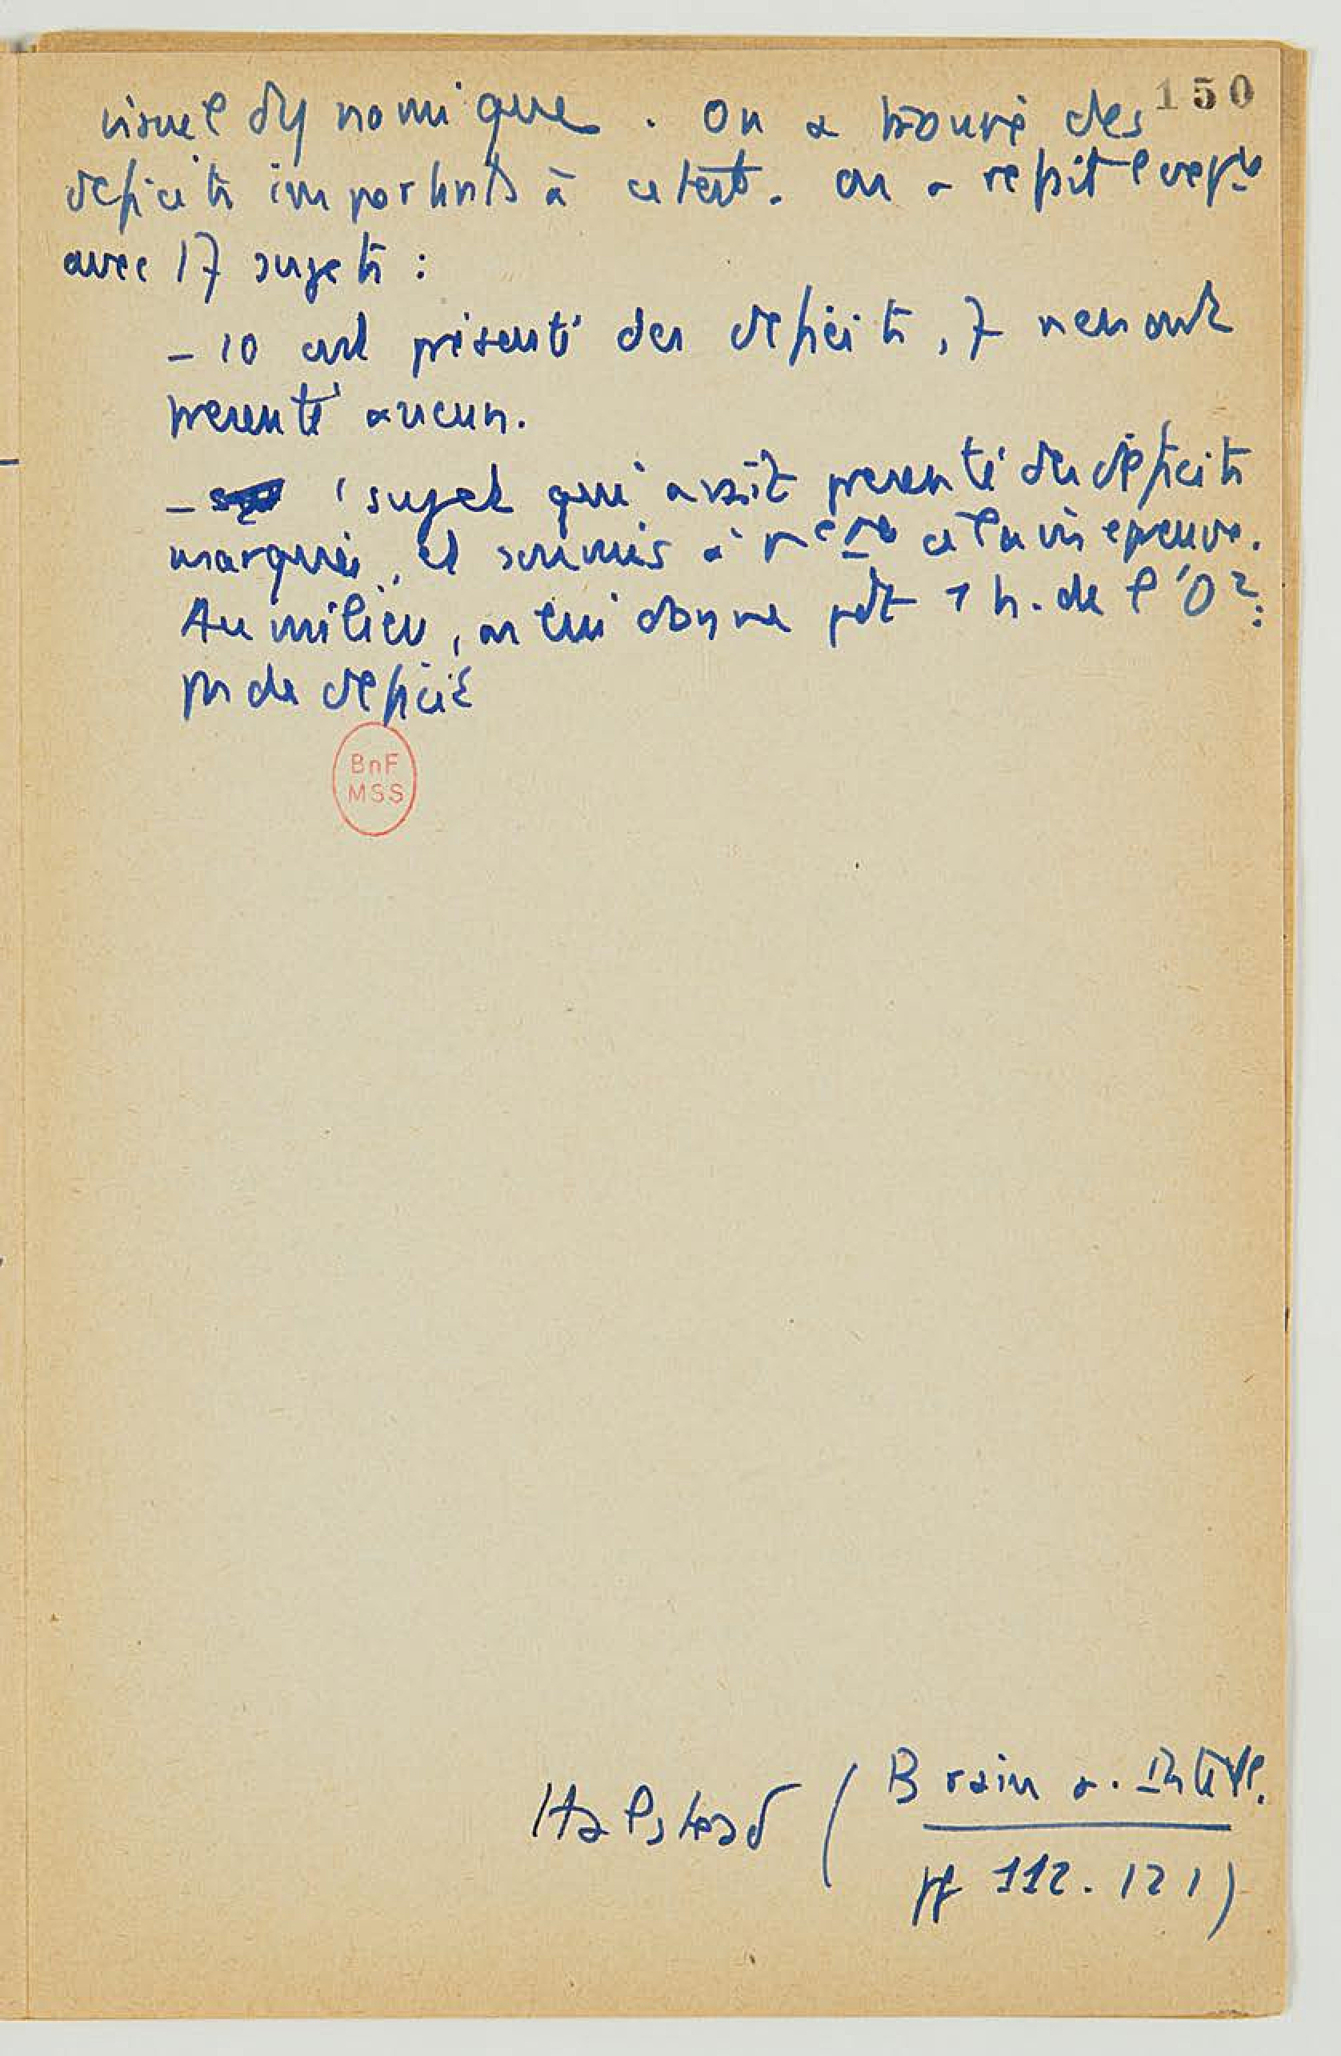 150
visuel dynamique. On a trouvé des
deficits importants à ce test. On a repris l'exp.
avec 17 sujets :
- 10 ont présenté des deficits, 7 n'en ont
présenté aucun.
- 1 sujet qui avait présenté des déficits
marqués, est soumis à à la même épreuve.
Au milieu, on lui donne pdt 1 h. de l'O2 :
pas de deficit
BnF
MSS
Halstead (Brain a. Intell.
pp 112. 121)